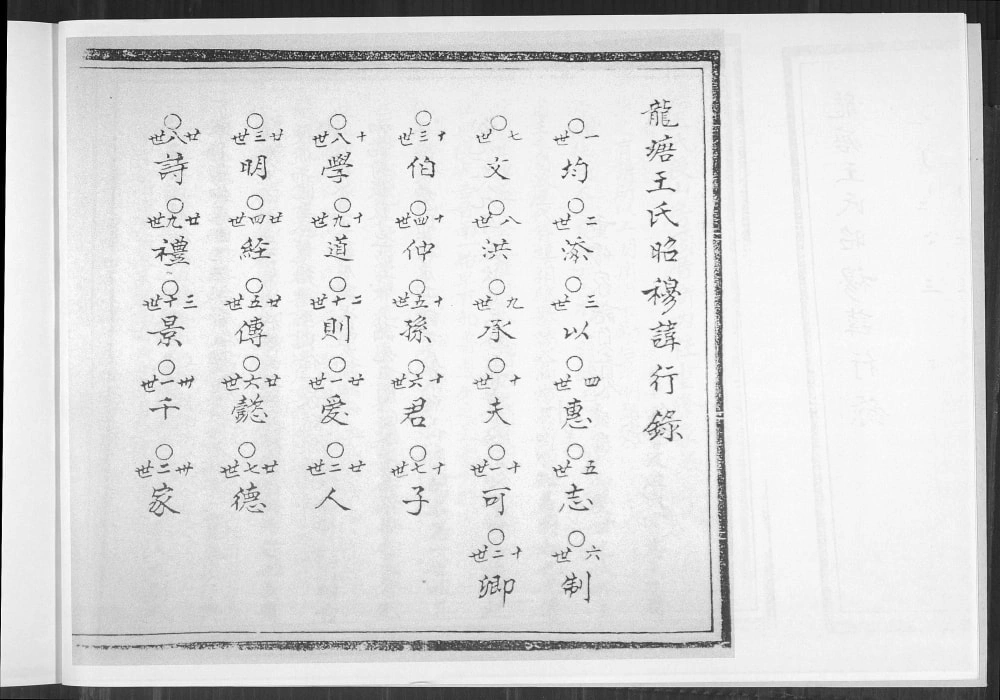 龍塘王氏昭穆諱行錄
○一世均○二世添○三世以○四世惠○五世志○六世制
○七世文○八世洪○九世承○十世夫○十一世可○十二世卿
○十三世伯○十四世仲○十五世孫○十六世君○十七世子
○十八世學○十九世道○二十世則○廿一世愛○廿二世人
○廿三世明○廿四世経○廿五世傳○廿六世懿○廿七世德
○廿八世詩○廿九世禮○三十世景○卅一世千○卅二世家